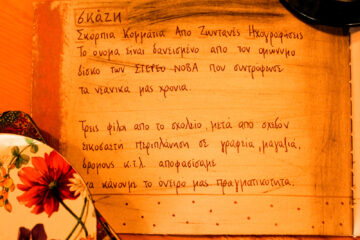 σκάζη
Σκόρπια Κομμάτια Απο Ζωντανές Ηχογραφήσεις
Το ονομα είναι δανεισμένο απο τον ομώνυμο
δίσκο των ΣΤΕΡΕΟ ΝΟΒΑ που συντρόφωσε
τα νεανικά μας χρονια.
Τρεις φίλοι απο το σχολείο, μετά απο σχεδον
εικοσαετή περιπλάνηση σε γραφεια, μαγαζιά,
δρομους κ.τ.λ. αποφασίσαμε
να κάνουμε το όνειρο μας πραγματικότητα.